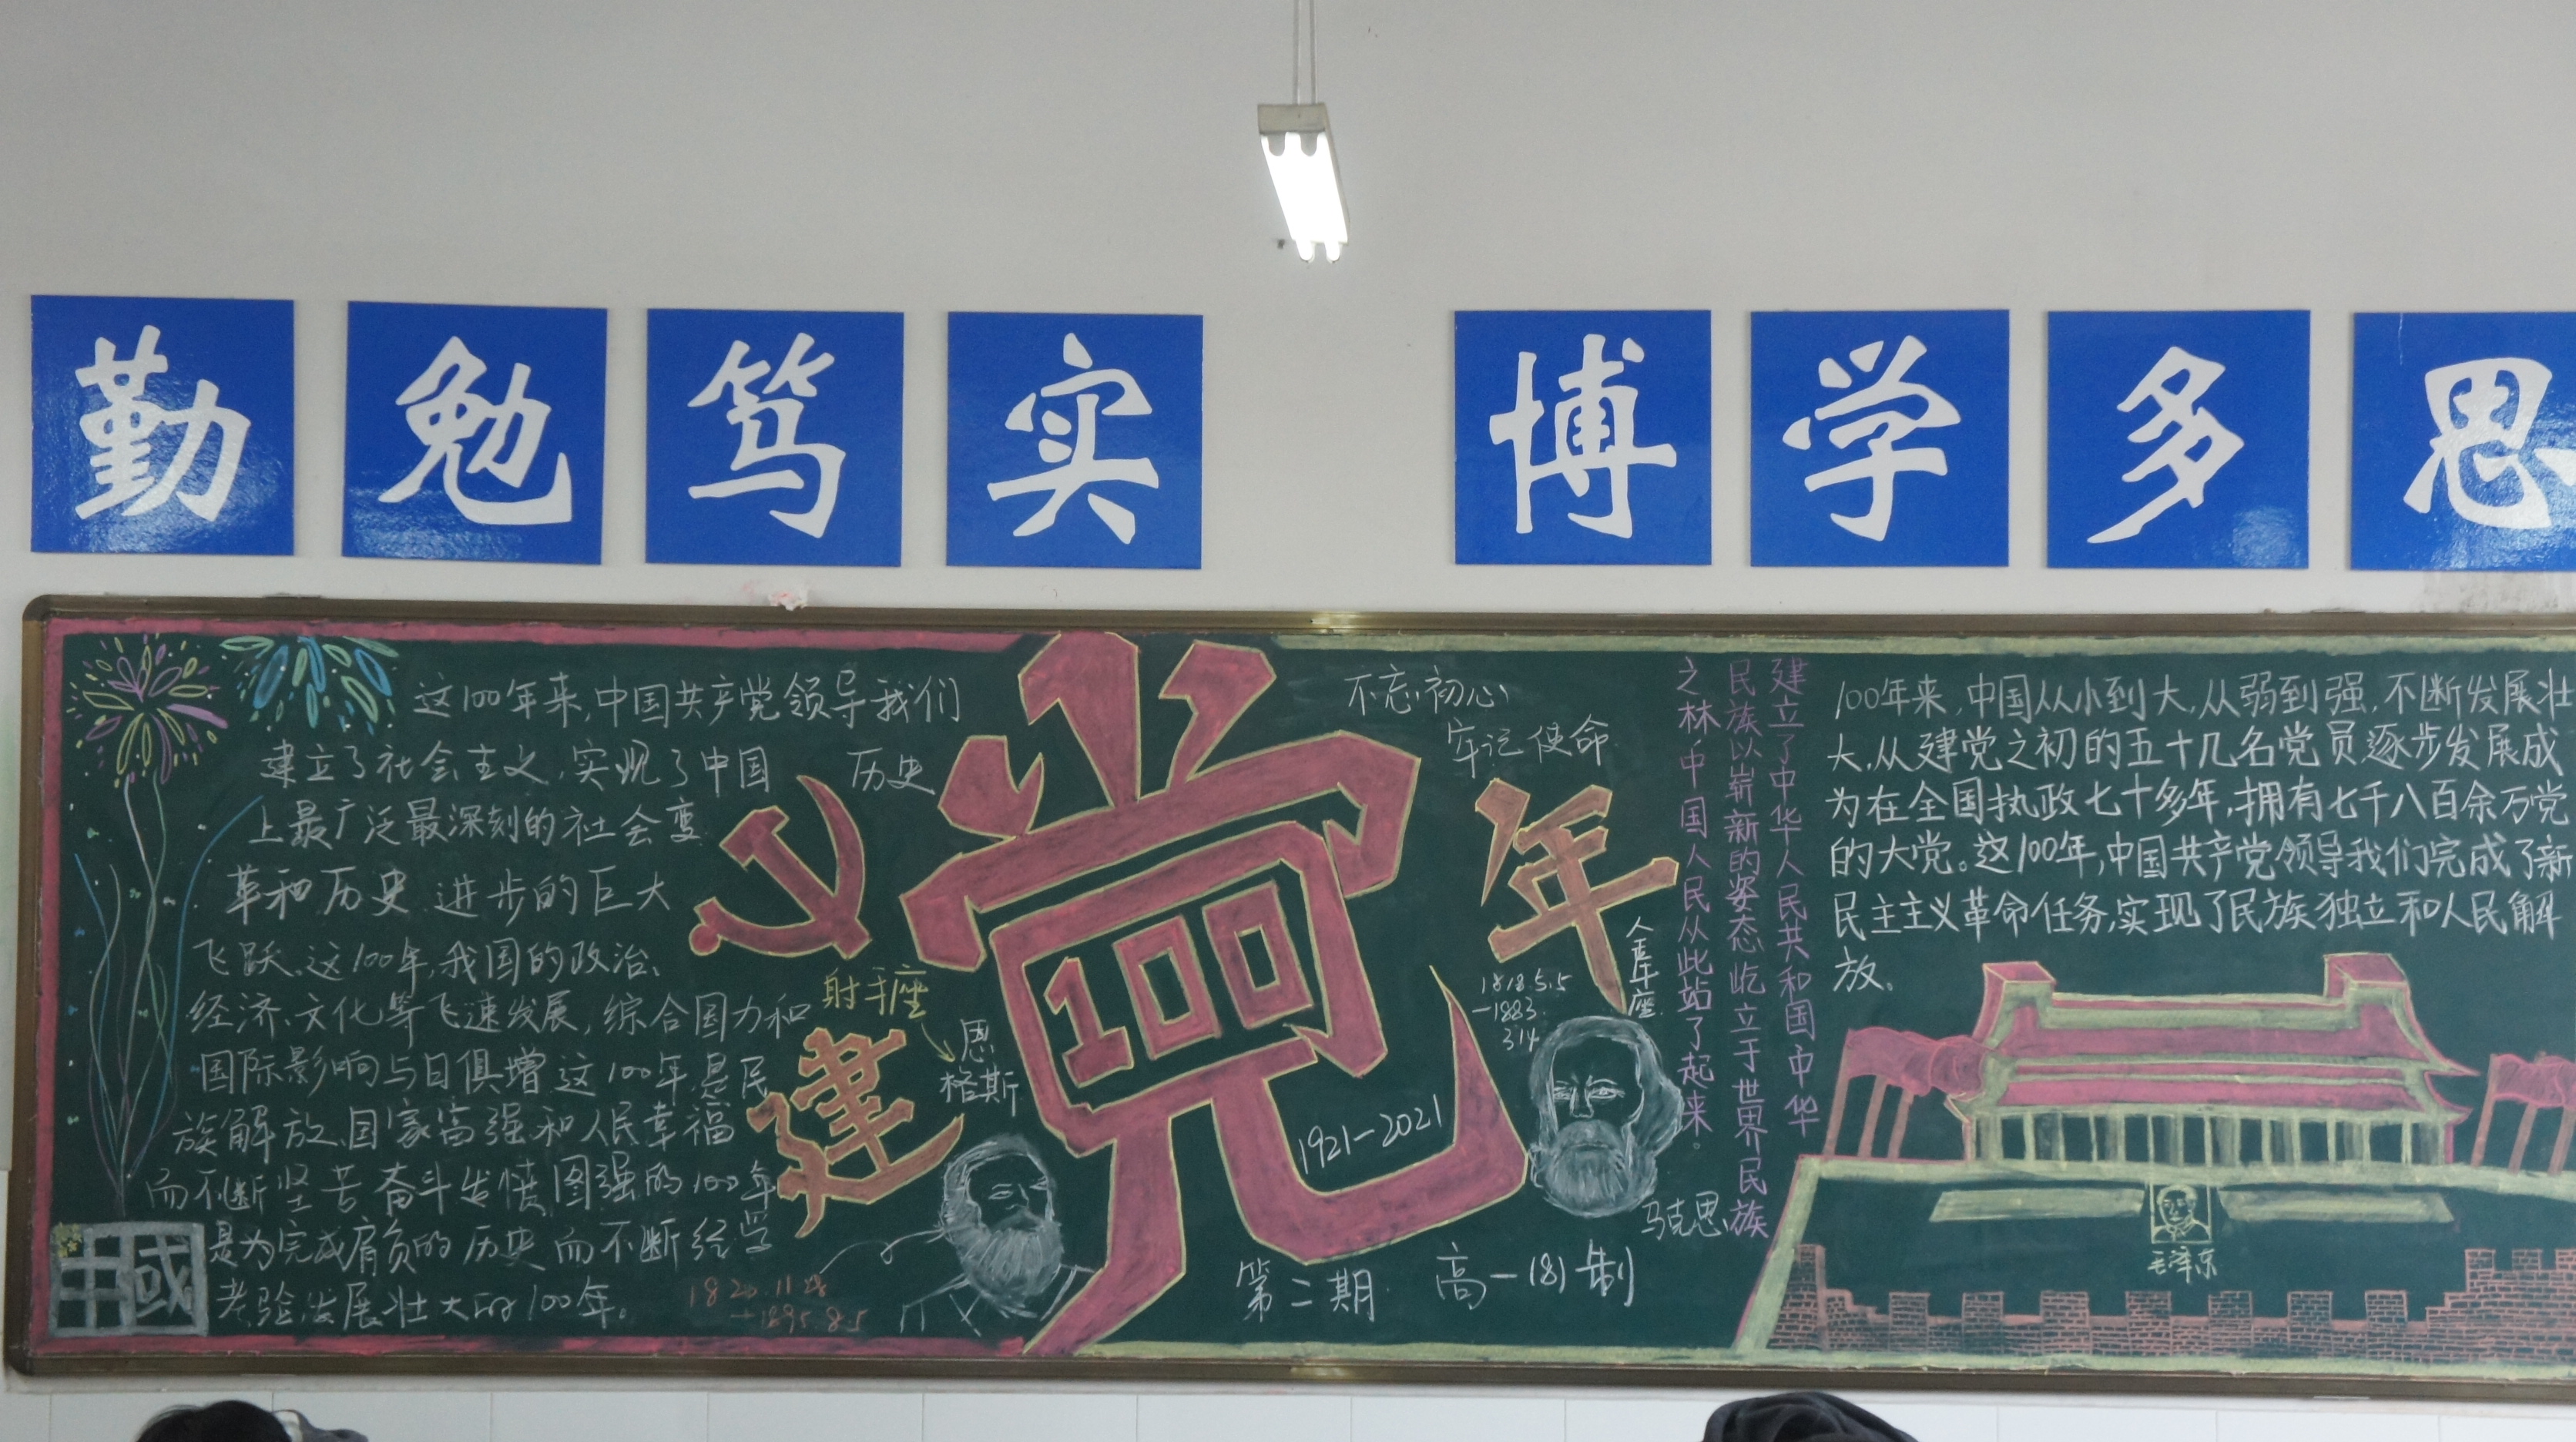 勤勉笃实
博学多思
这100年来,中国共产党领导我们
建立了社会主义,实现了中国 历史
上最广泛最深刻的社会变
革和历史 进步的巨大
飞跃.这100年,我国的政治、
经济、文化等飞速发展,综合国力和
国际影响与日俱增这100年是民
族解放、国家富强和人民幸福
而不断坚苦奋斗发愤图强的100年
是为完成肩负的历史而不断经受
考验发展壮大的100年。
中國
1820.11.28
-1895.8.5
射手座
恩
格斯
建
党
100
年
1921-2021
不忘初心
牢记使命
1818.5.5
-1883.
3.14
马克思
第二期 高一(8)制
建立了中华人民共和国中华
民族以崭新的姿态屹立于世界民族
之林,中国人民从此站了起来。
100年来,中国从小到大,从弱到强,不断发展壮
大,从建党之初的五十几名党员逐步发展成
为在全国执政七十多年,拥有七千八百余万党
的大党。这100年,中国共产党领导我们完成了新
民主主义革命任务,实现了民族独立和人民解
放。
毛泽东